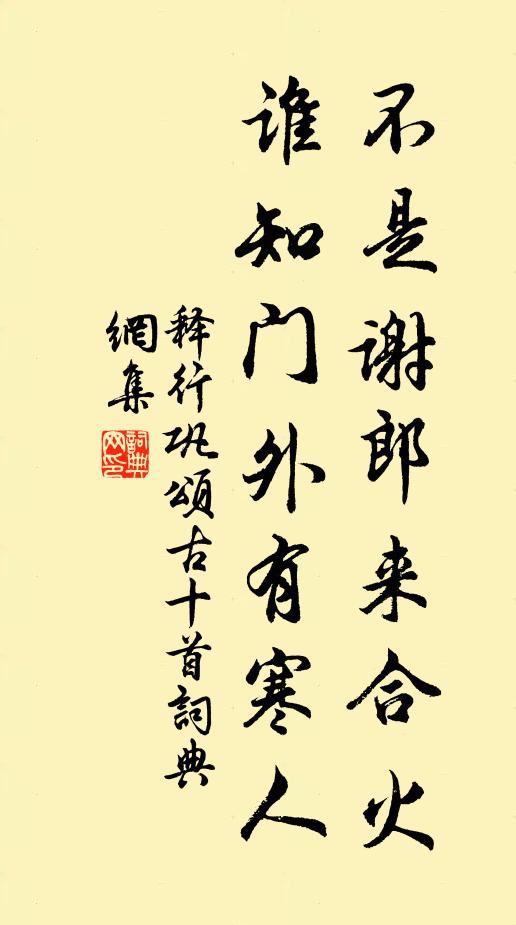 不是谢郎来合火
谁知门外有寒人
释行巩頌古十首詞典
網集
詞典
网印